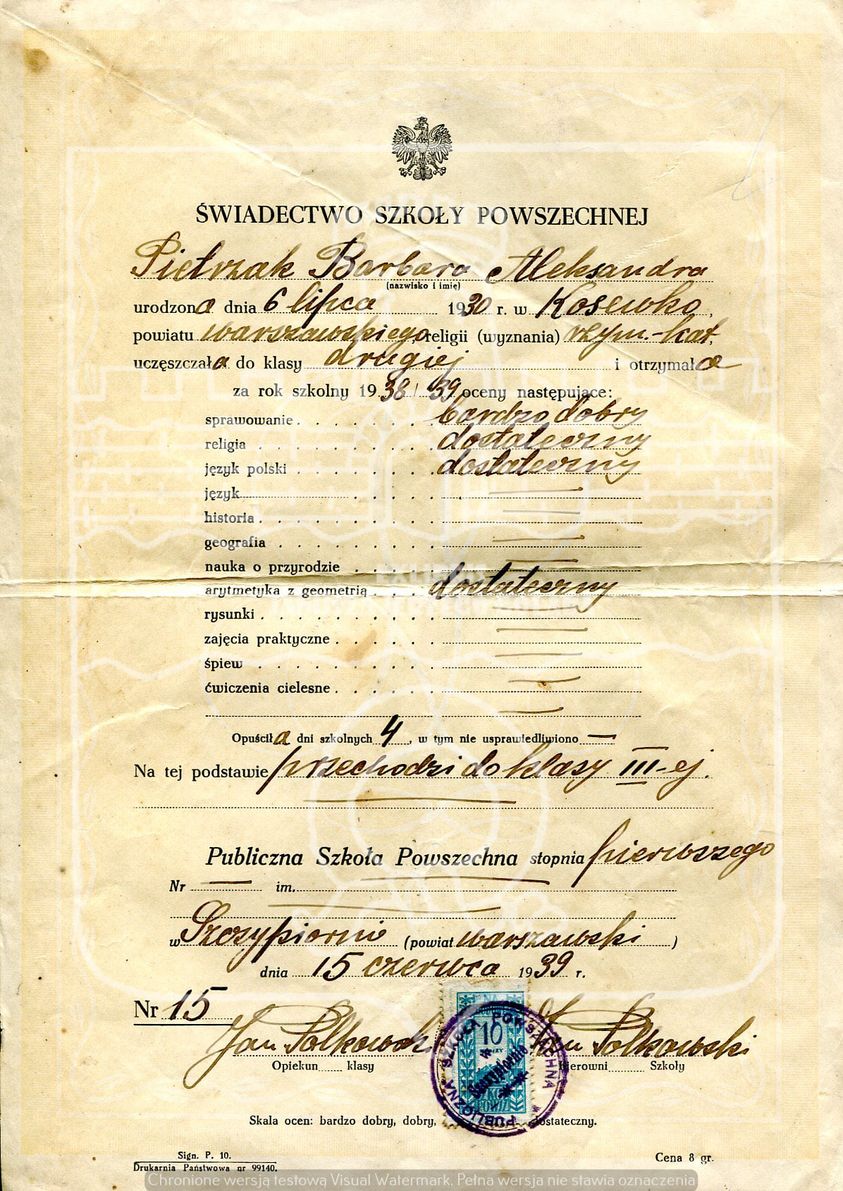 ŚWIADECTWO SZKOŁY POWSZECHNEJ
Pietrzak Barbara Aleksandra
(nazwisko i imię)
urodzona dnia 6 lipca 1930 r. w Kosewko,
powiatu warszawskiego religii (wyznania) rzym.-kat.
uczęszczała do klasy drugiej i otrzymała
za rok szkolny 1938/39 oceny następujące:
sprawowanie bardzo dobry
religia dostateczny
język polski dostateczny
język —
historia —
geografia —
nauka o przyrodzie —
arytmetyka z geometrią dostateczny
rysunki —
zajęcia praktyczne —
śpiew —
ćwiczenia cielesne —
Opuściła dni szkolnych 4, w tym nie usprawiedliwiono —
Na tej podstawie przechodzi do klasy III-ej.
Publiczna Szkoła Powszechna stopnia pierwszego
Nr — im. —
w Szczypiornie (powiat warszawski)
dnia 15 czerwca 1939 r.
Nr 15
Jan Polkowski Jan Polkowski
Opiekun klasy Kierowni Szkoły
PUBLICZNA SZKOŁA POWSZECHNA
10
Skala ocen: bardzo dobry, dobry, dostateczny.
Sign. P. 10.
Drukarnia Państwowa nr 99140.
Cena 8 gr.
Chronione wersją testową Visual Watermark. Pełna wersja nie stawia oznaczenia